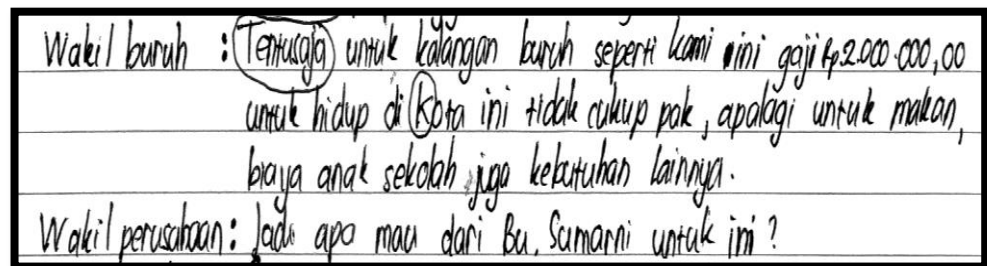 Wakil buruh : Tentusaja untuk kalangan buruh seperti kami ini gaji Rp2.000.000,00
untuk hidup di Kota ini tidak cukup pak, apalagi untuk makan,
biaya anak sekolah juga kebutuhan lainnya.
Wakil perusahaan : Jadi apa mau dari Bu. Sumarni untuk ini ?